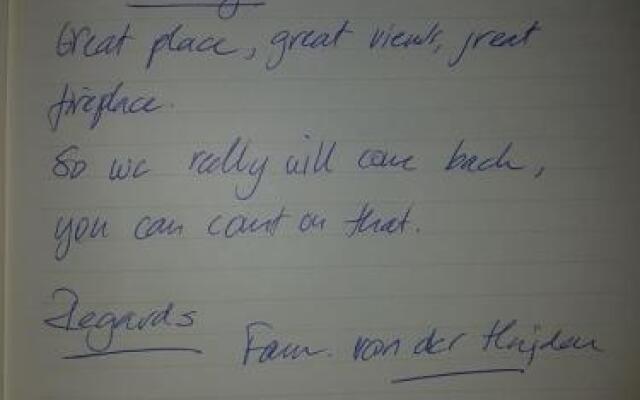 Great place, great views, great
fireplace.
So we really will come back,
you can count on that.
Regards
Fam. van der Heijden